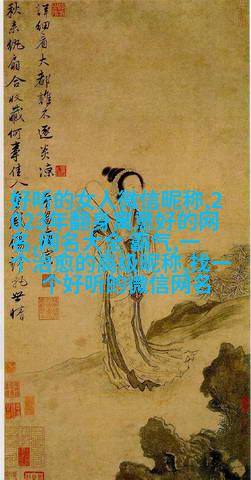 秋来紈扇合收藏何事佳人
托世情
詳細看大都誰不逐炎凉
好听的女人微信昵称,2
023年翻身寓意好的网
名,网名大全 霸气,一
个治愈的高级昵称,找一
个好听的微信网名